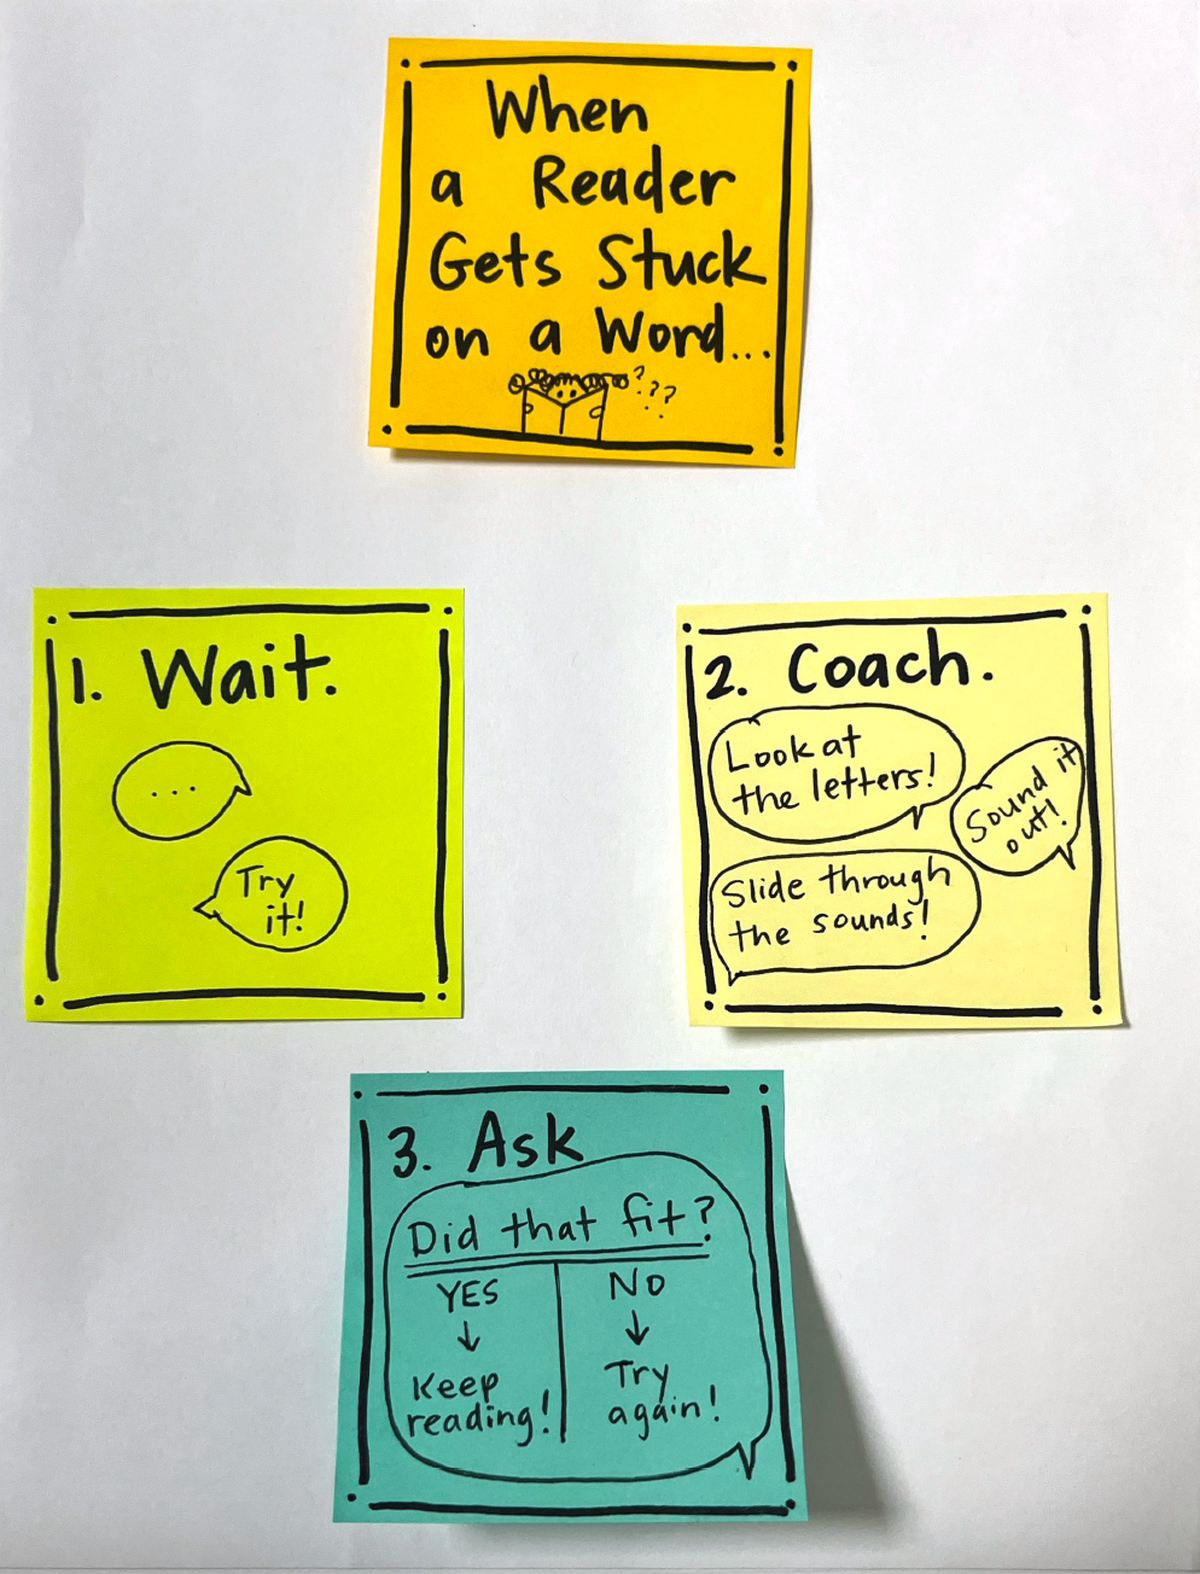 When
a Reader
Gets Stuck
on a Word...
???
1. Wait.
...
Try
it!
2. Coach.
Look at
the letters!
Sound it
out!
Slide through
the sounds!
3. Ask
Did that fit?
YES
↓
Keep
reading!
NO
↓
Try
again!